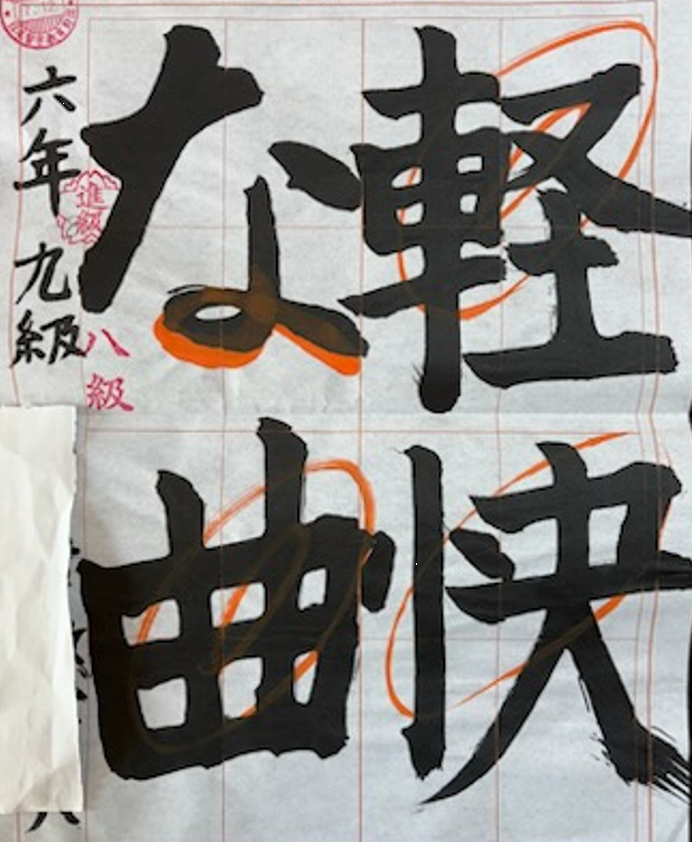 軽快
な曲
六年 九級
進級
八級